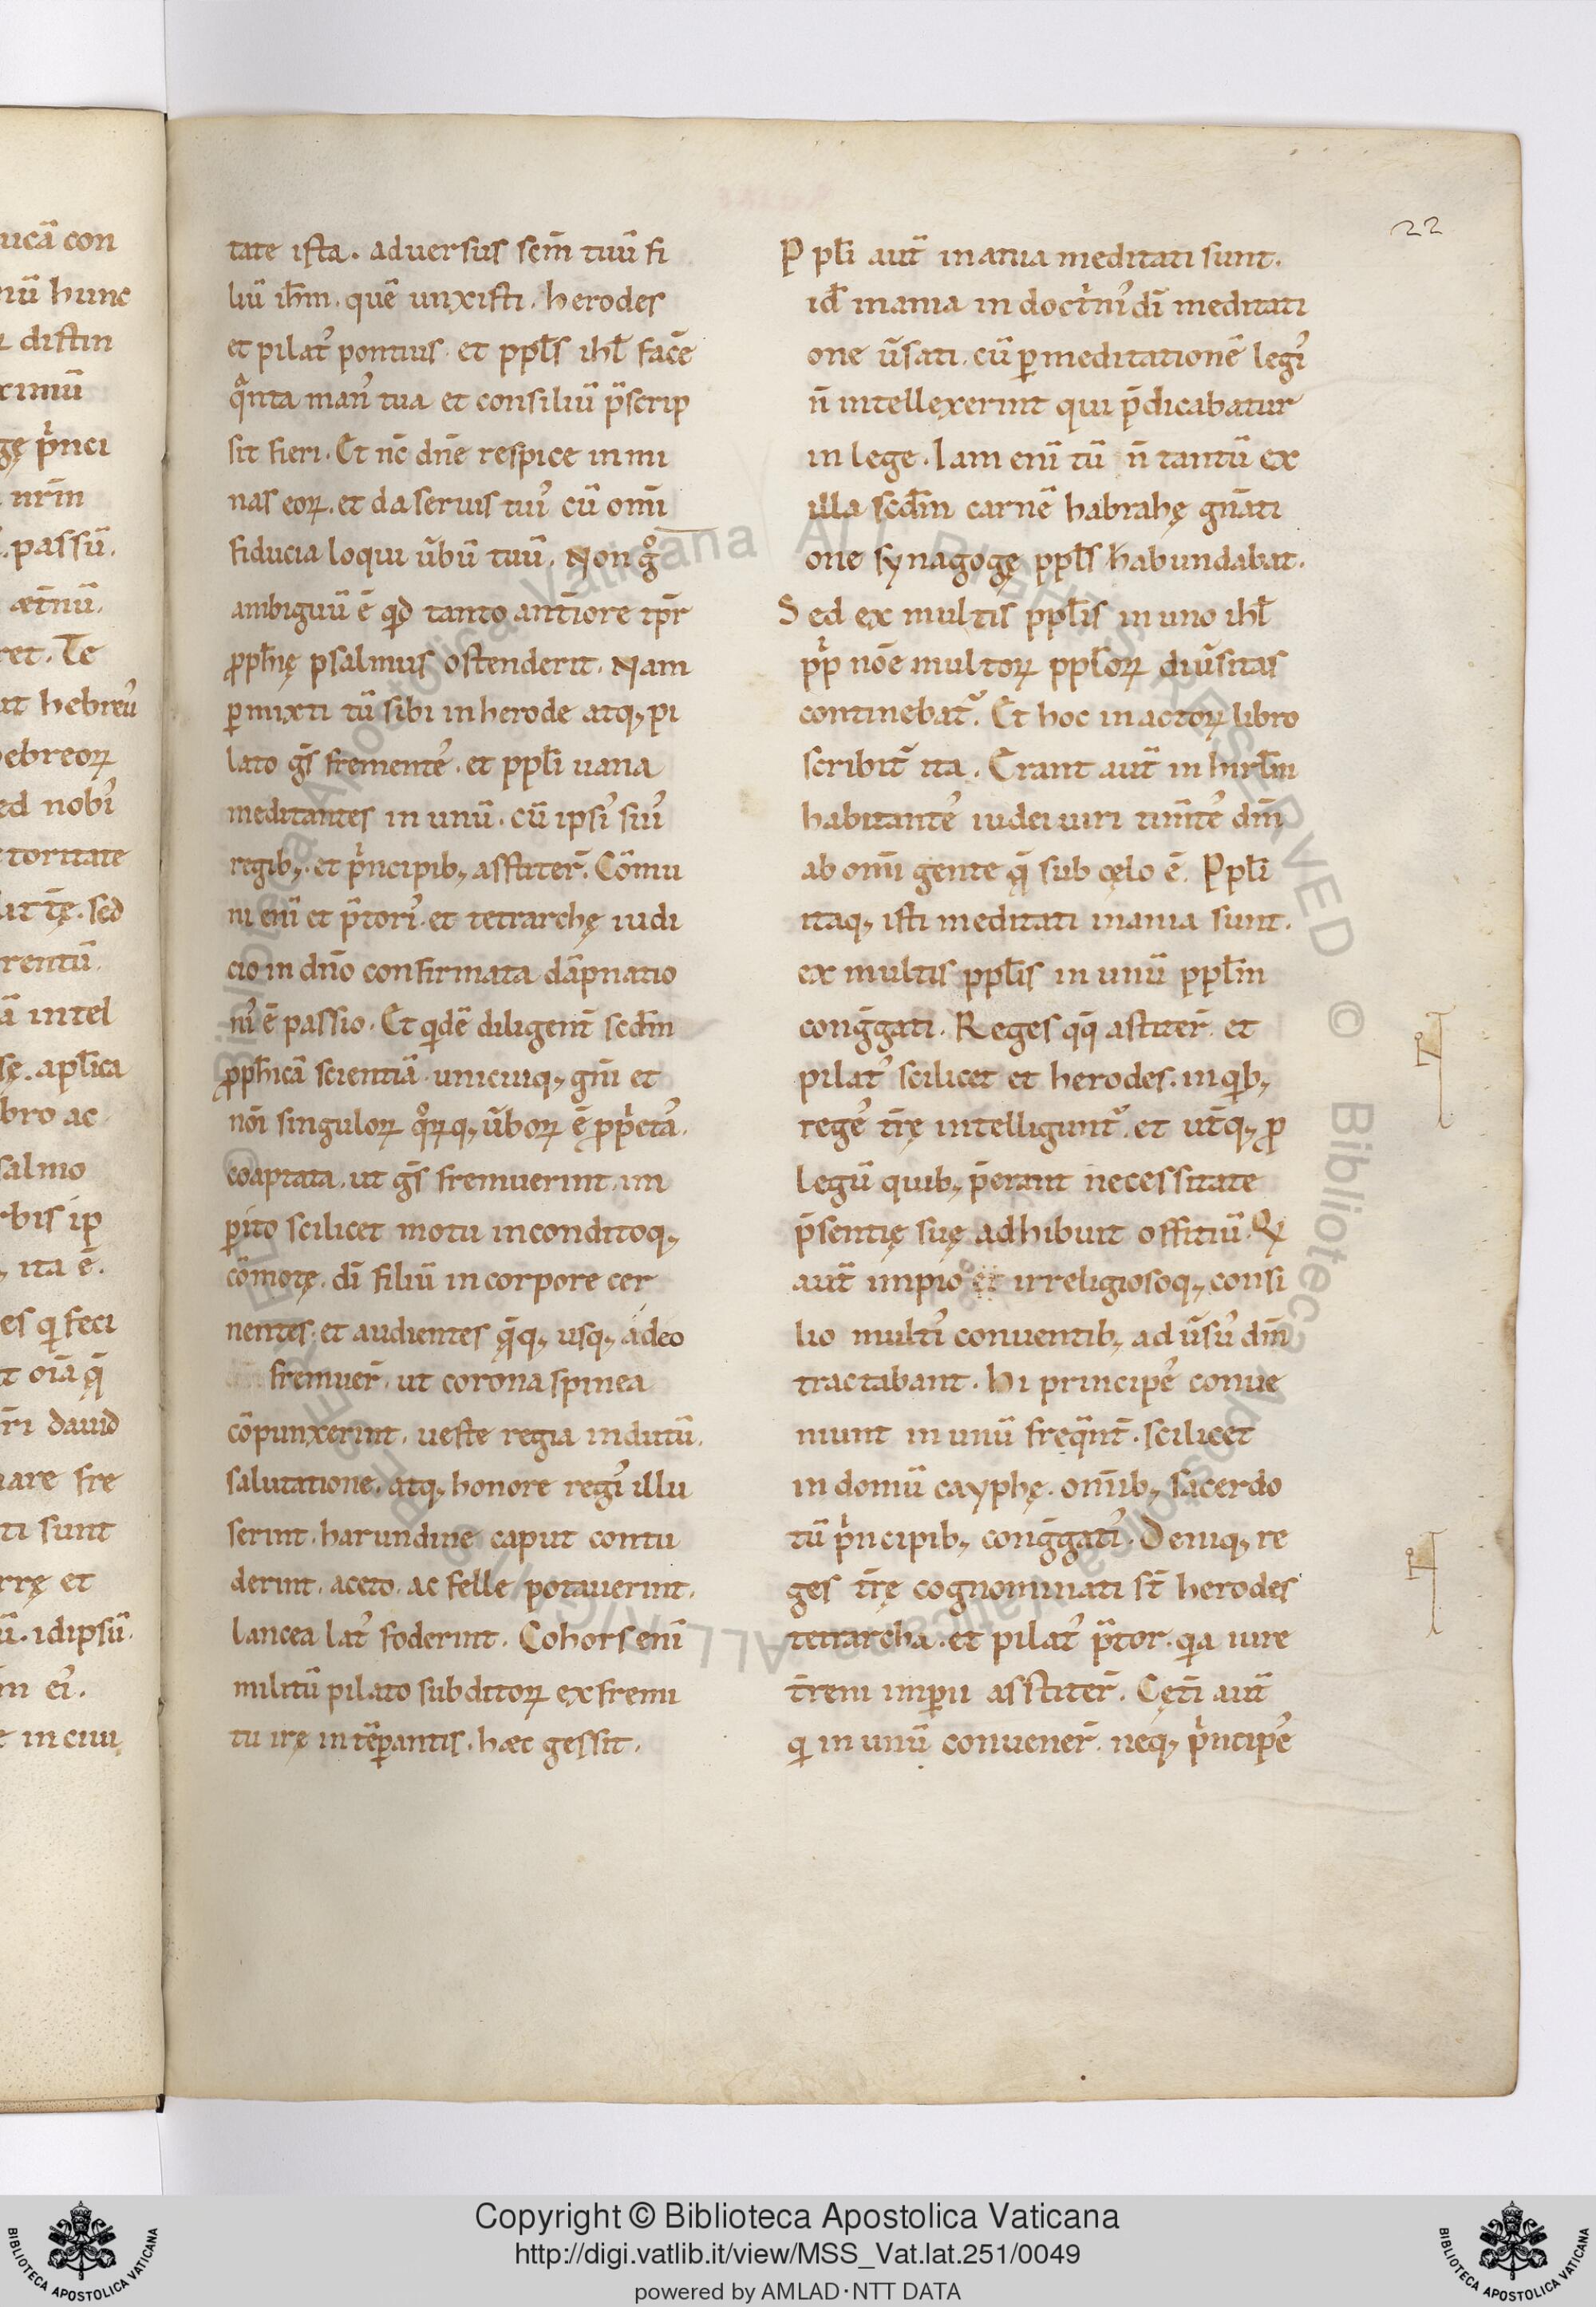 22
ucā con
niū hunc
distin
ximiū
gę pͥnci
nr̄m
passū.
æt̄nū.
ret. Te
ut hebreuˀ
ebreoꝝ
ed nobˀ
toritate
lit t̄ę. sed
rentū.
ā intel
sę. apl̄ica
bro ac
salmo
rbis ip
ita ē.
es q feci
t oīa q̄
r̄i dauid
nare fre
ti sunt
rrę et
ū. idipsū.
m eiˀ.
e in ciui
tate ista. aduersus sc̄m tuū fi
liū ih̄m. quē unxisti. herodes
et pilatˀ pontius. et ppl̄s ihl̄ facē
qͣnta manˀ tua et consiliū p̄scrip
sit fieri. Et nc̄ dn̄e respice in mi
nas eoꝝ. et da seruis tuiˀ cū omī
fiducia loqui ūbū tuū. Non gͦ
ambiguū ē qd tanto ant̄iore tp̄r
ꝓph̄ę psalmus ostenderit. Nam
ꝑmixti tū sibi in herode atq; pi
lato gs̄ frementeˀ. et ppl̄i uana
meditantes in unū. cū ipsiˀ suiˀ
regib; et pͥncipib; asstiter̄. Cōmu
ni enī et p̄toriˀ et tetrarchę iudi
cio in dn̄o confirmata dāpnatio
niˀ ē passio. Et qdē diligent̄ scd̄m
ꝓph̄icā scientiā. unicuiq; gn̄i et
nōi singuloꝝ qͦꝝq; ūboꝝ ē ꝓpͥetaˀ.
coaptata. ut gs̄ fremuerint. im
ꝑito scilicet motu inconditoq;
cōmotę. dī filiū in corpore cer
nentes. et audientes q̨̄q; usq; adeo
fremuer̄. ut corona spinea
cōpunxerint. ueste regia indutū.
salutatione. atq; honore regiˀ illu
serint. harundine caput contu
derint. aceto. ac felle potauerint.
lancea latˀ foderint. Cohors enī
militū pilato subditoꝝ ex fremi
tu irę intēꝑantis. hæc gessit.
P pl̄i aut̄ inania meditati sunt.
id̄ inania in doctͥniˀ dī meditati
one ūsati. cū ꝑ meditationē legiˀ
n̄ intellexerint qui p̄dicabatur
in lege. Iam enī tū n̄ tantū ex
illa scd̄m carnē habrahę gn̄ati
one synagogę ppl̄s habundabat.
Sed ex multis ppl̄is in uno ihl̄
pͥp nōe multoꝝ ppl̄oꝝ diūsitas
continebat̄. Et hoc in actoꝝ libro
scribit̄ ita. Erant aut̄ in hirl̄m
habitanteˀ iudei uiri tim̄teˀ dm̄
ab omī gente q̨̄ sub cęlo ē. Ppl̄i
itaq; isti meditati inania sunt.
ex multis ppl̄is in unū ppl̄m
cong̅gati. Reges qq̄ astiter̄. et
pilatˀ scilicet et herodes. in qb;
regeˀ tr̄ę intelligunt̄. et ut̄q; ꝓ
legū quib; p̄erant necessitate
p̄sentię suę adhibuit offitiū.
aut̄ impio et irreligiosoq; consi
lio multiˀ conuentib; ad ūsuˀ dm̄
tractabant. hi principeˀ conue
niunt in unū freq̄nt̄. scilicet
in domū cayphę. omīb; sacerdo
tū pͥncipib; cong̅gatiˀ. Deniq; re
ges tr̄ę cognominati st̄ herodes
tetrarcha. et pilatˀ p̄tor. qa iure
t̄reni imꝑii asstiter̄. Cęt̄i aut̄
q in unū conuener̄. neq; pͥncipeˀ
Copyright © Biblioteca Apostolica Vaticana
http://digi.vatlib.it/view/MSS_Vat.lat.251/0049
powered by AMLAD·NTT DATA
BIBLIOTECA APOSTOLICA VATICANA
BIBLIOTECA APOSTOLICA VATICANA